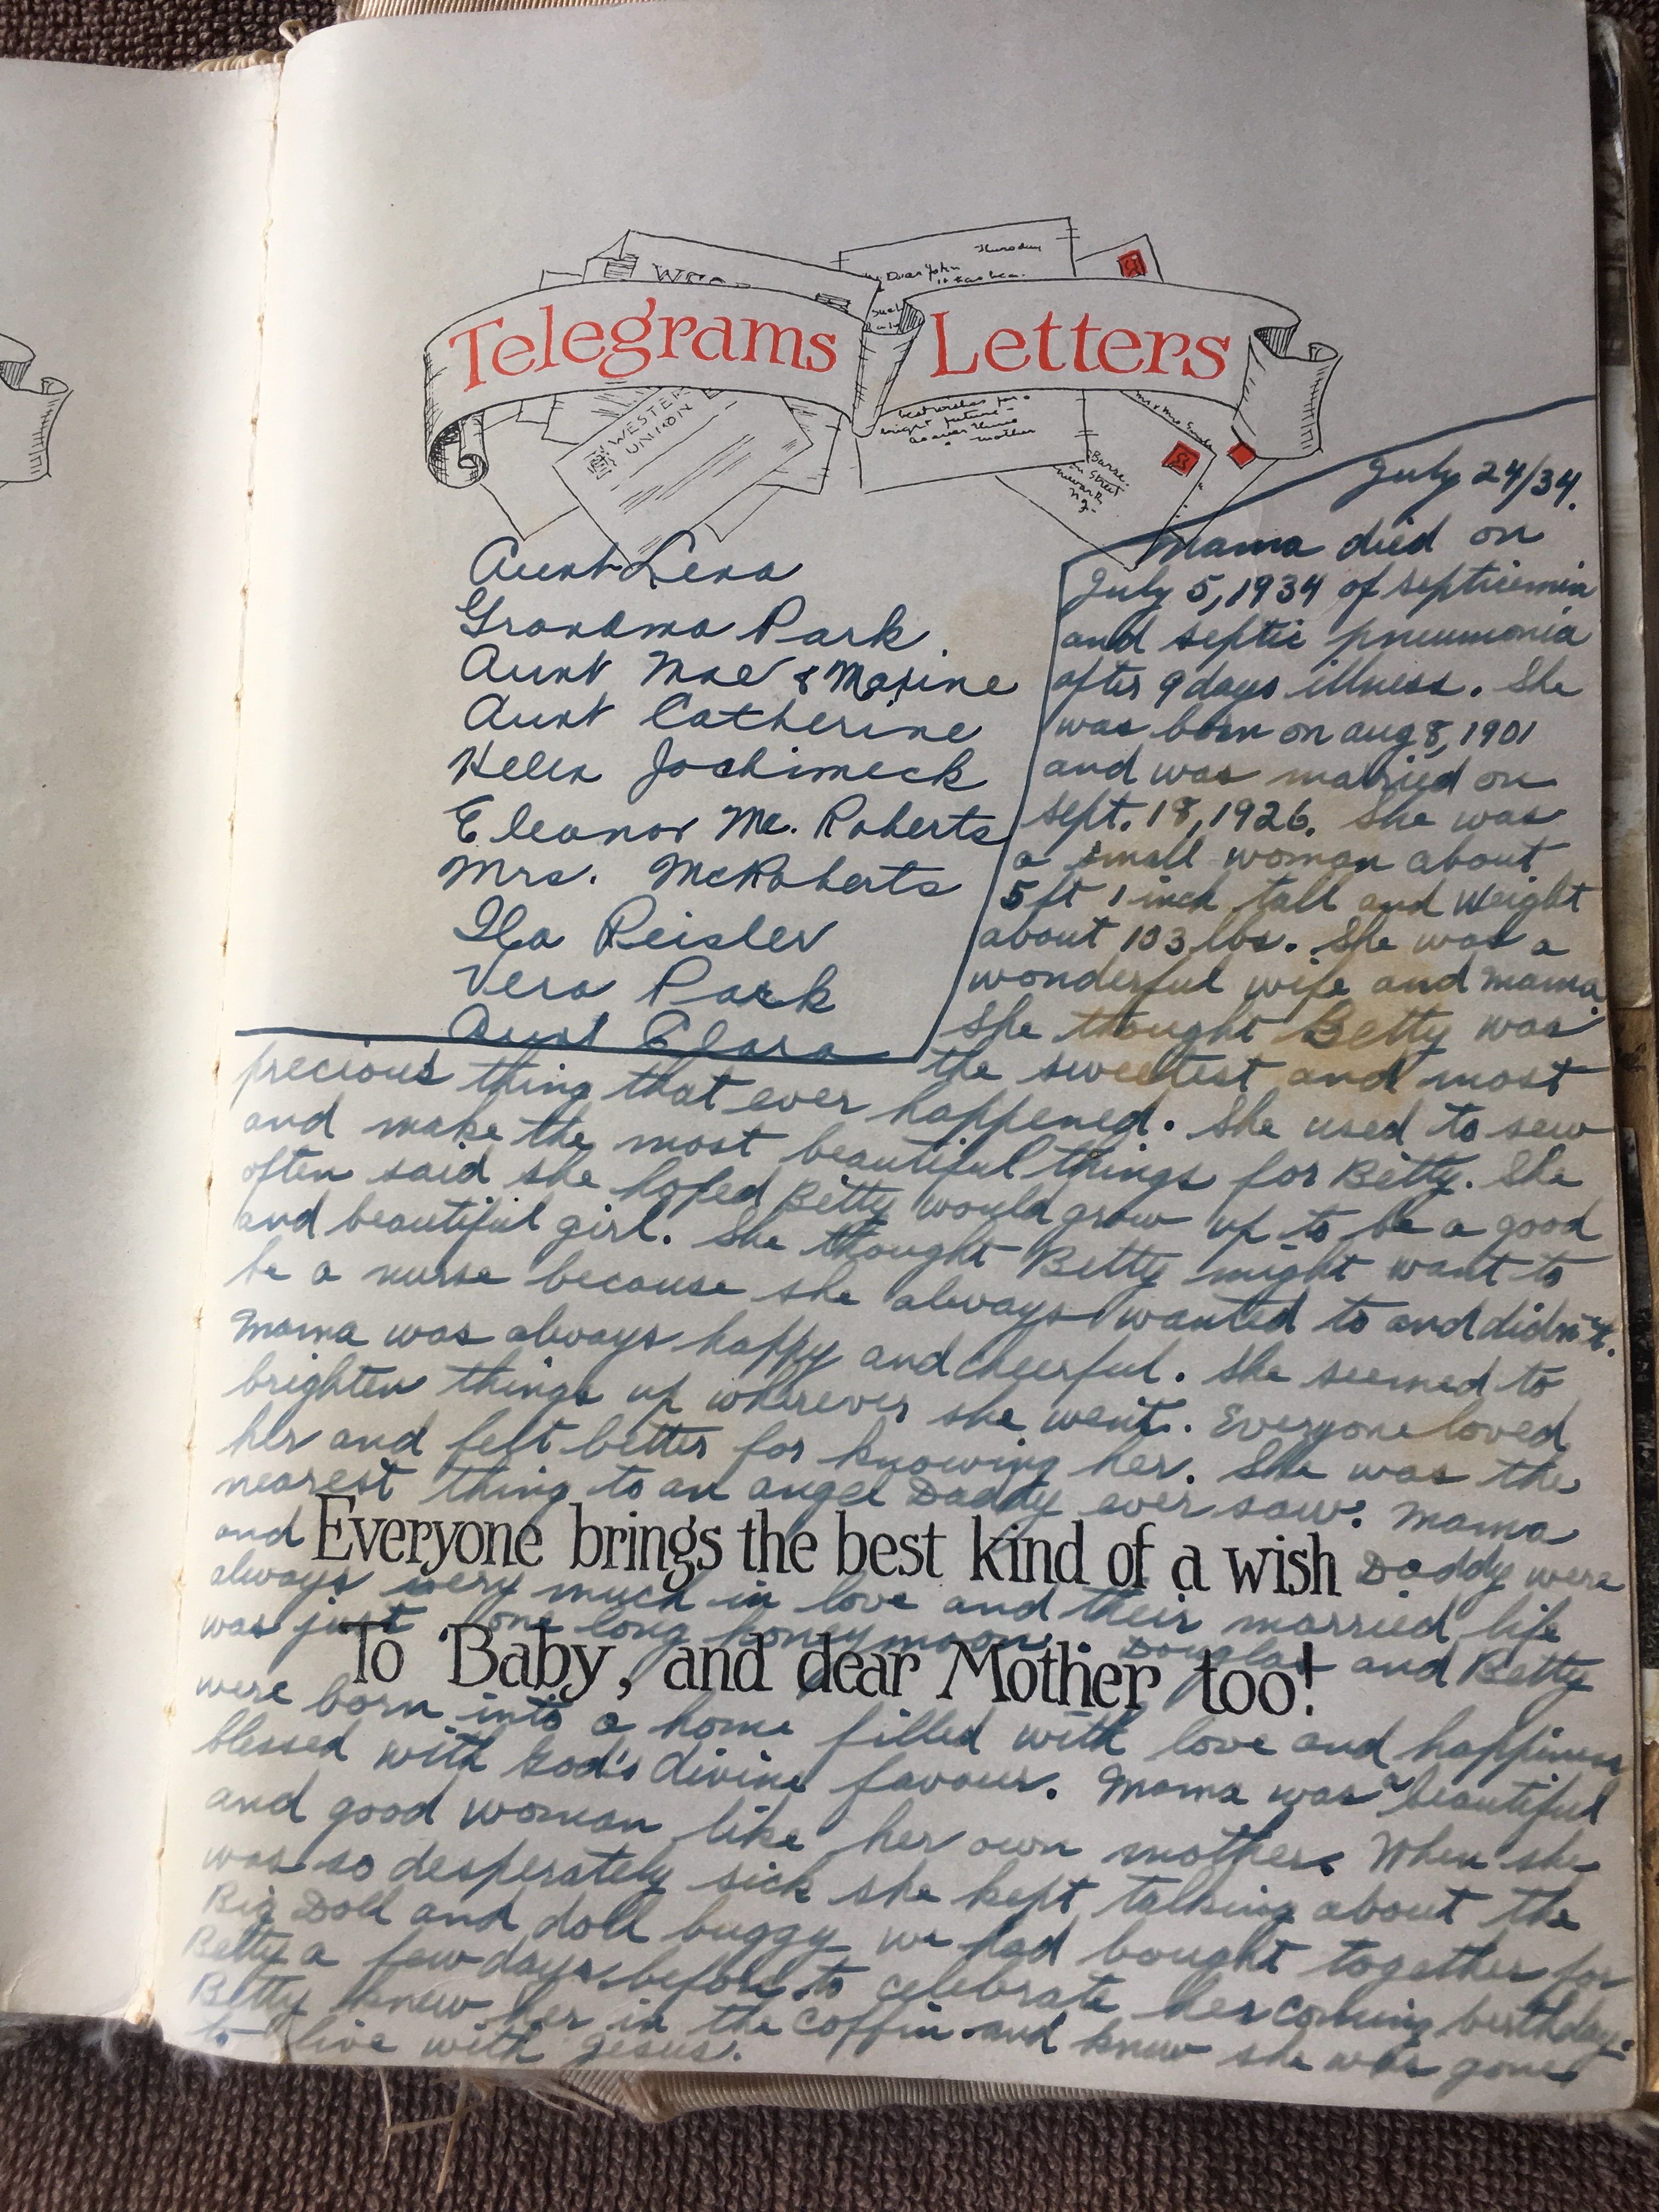 Telegrams Letters
WESTERN
UNION
Dear John
best wishes for a
bright future -
mother
Aunt Lena
Grandma Park
Aunt Mae & Maxine
Aunt Catherine
Helen Jochimeck
Eleanor Mc. Roberts
Mrs. McRoberts
Ila Reisler
Vera Park
Aunt Clara
July 24/34.
Mama died on
July 5, 1934 of septicemia
and septic pneumonia
after 9 days illness. She
was born on aug 8, 1901
and was married on
Sept. 18, 1926. She was
a small woman about
5 ft 1 inch tall and Weight
about 103 lbs. She was a
wonderful wife and mama.
She thought Betty was
the sweetest and most
precious thing that ever happened. She used to sew
and make the most beautiful things for Betty. She
often said she hoped Betty would grow up to be a good
and beautiful girl. She thought Betty might want to
be a nurse because she always wanted to and didn't.
Mama was always happy and cheerful. She seemed to
brighten things up wherever she went. Everyone loved
her and felt better for knowing her. She was the
nearest thing to an angel Daddy ever saw. Mama
and Daddy were
Everyone brings the best kind of a wish
always very much in love and their married life
was just one long honeymoon. Douglas and Betty
To Baby, and dear Mother too!
were born into a home filled with love and happiness
blessed with God's divine favour. Mama was a beautiful
and good woman like her own mother. When she
was so desperately sick she kept talking about the
Big Doll and doll buggy we had bought together for
Betty a few days before to celebrate her coming birthday.
Betty knew her in the coffin and knew she was gone
to live with Jesus.